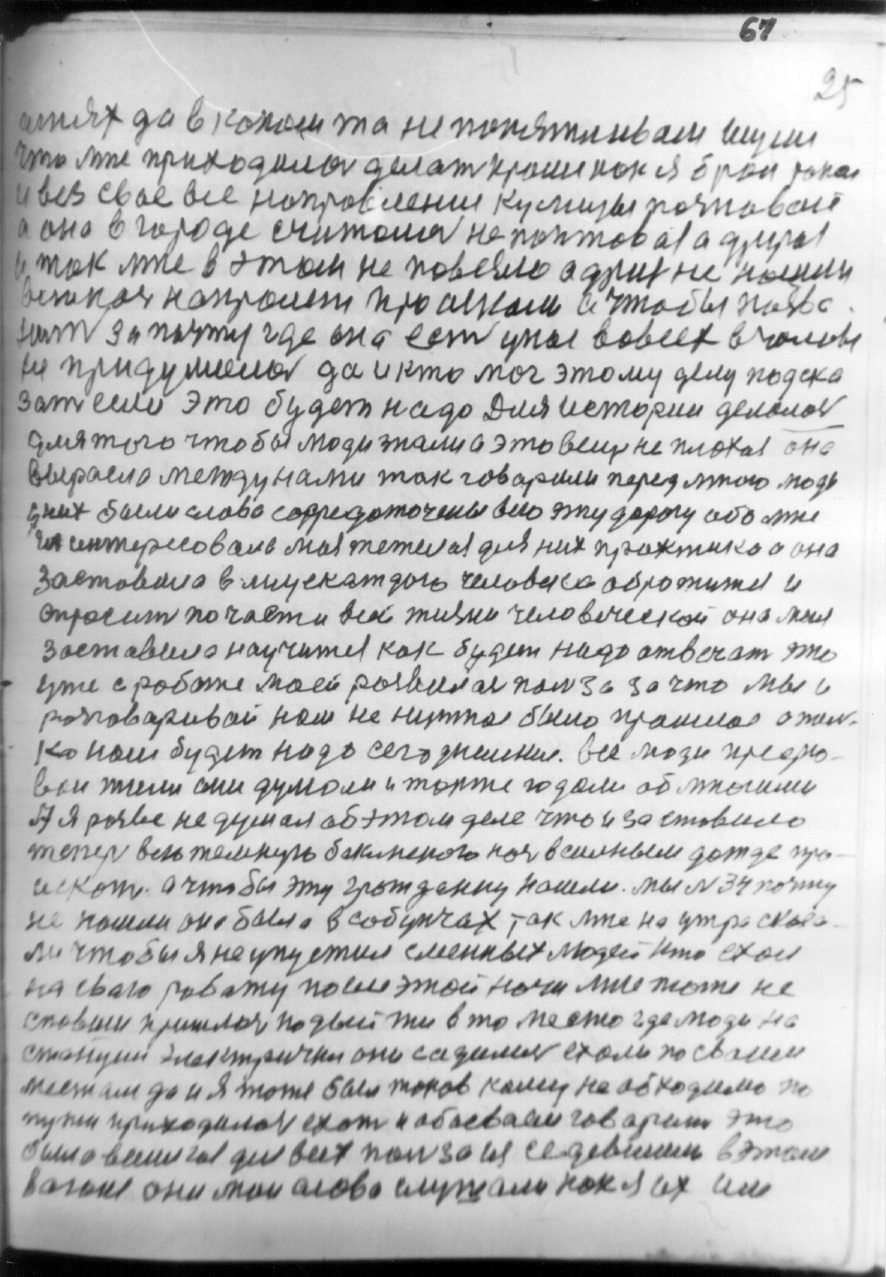 67
25
да в каком та не
что мне приходилос делат кроме как я брал
и вез свое все направлении
а она в городе считалас не почтовая а другая
и так мне в этом не повезло а друг не нашли
напролет проискали а чтобы
за почту где она ест у нас вовсех в голове
не придумалос да и кто мог этому делу подска
зат если это будет надо Для истории делалос
для того чтобы люди знали а это вещ не плохая она
выросла между нами так говарили перед мною люди
у них были слова сосредоточены всю эту дорогу обо мне
интересовала моя тяжелая для них практика а она
заставила в миг каждого человека обротится и
спросит по части всей жизни человеческой она меня
заставила научится как будет надо отвечат это
уже с работе моей развилас полза за что мы и
разговаривай нам не нужно было прошлое а тол-
ко нам будет надо сегодняшнее. все люди
жили они думали и тоже годами об многими
А я разве не думал об этом деле что и заставило
тепер всю темную ноч в силным дожде про-
искат. а чтобы эту гражданку нашли. мы № 34 почту
не нашли она была в так мне на утро сказа-
ли чтобы я не упустил сменных людей кто ехал
на сваю работу после этой ночи мне тоже не
спавши пришлос в то место где люди на
станции электрички они садилис ехали по своим
местам да и я тоже был таков кому необходимо по
пути приходилос ехат и об своем говарит это
была для всех полза и я седевшим в этом
вагоне они мои слова слушали как я их